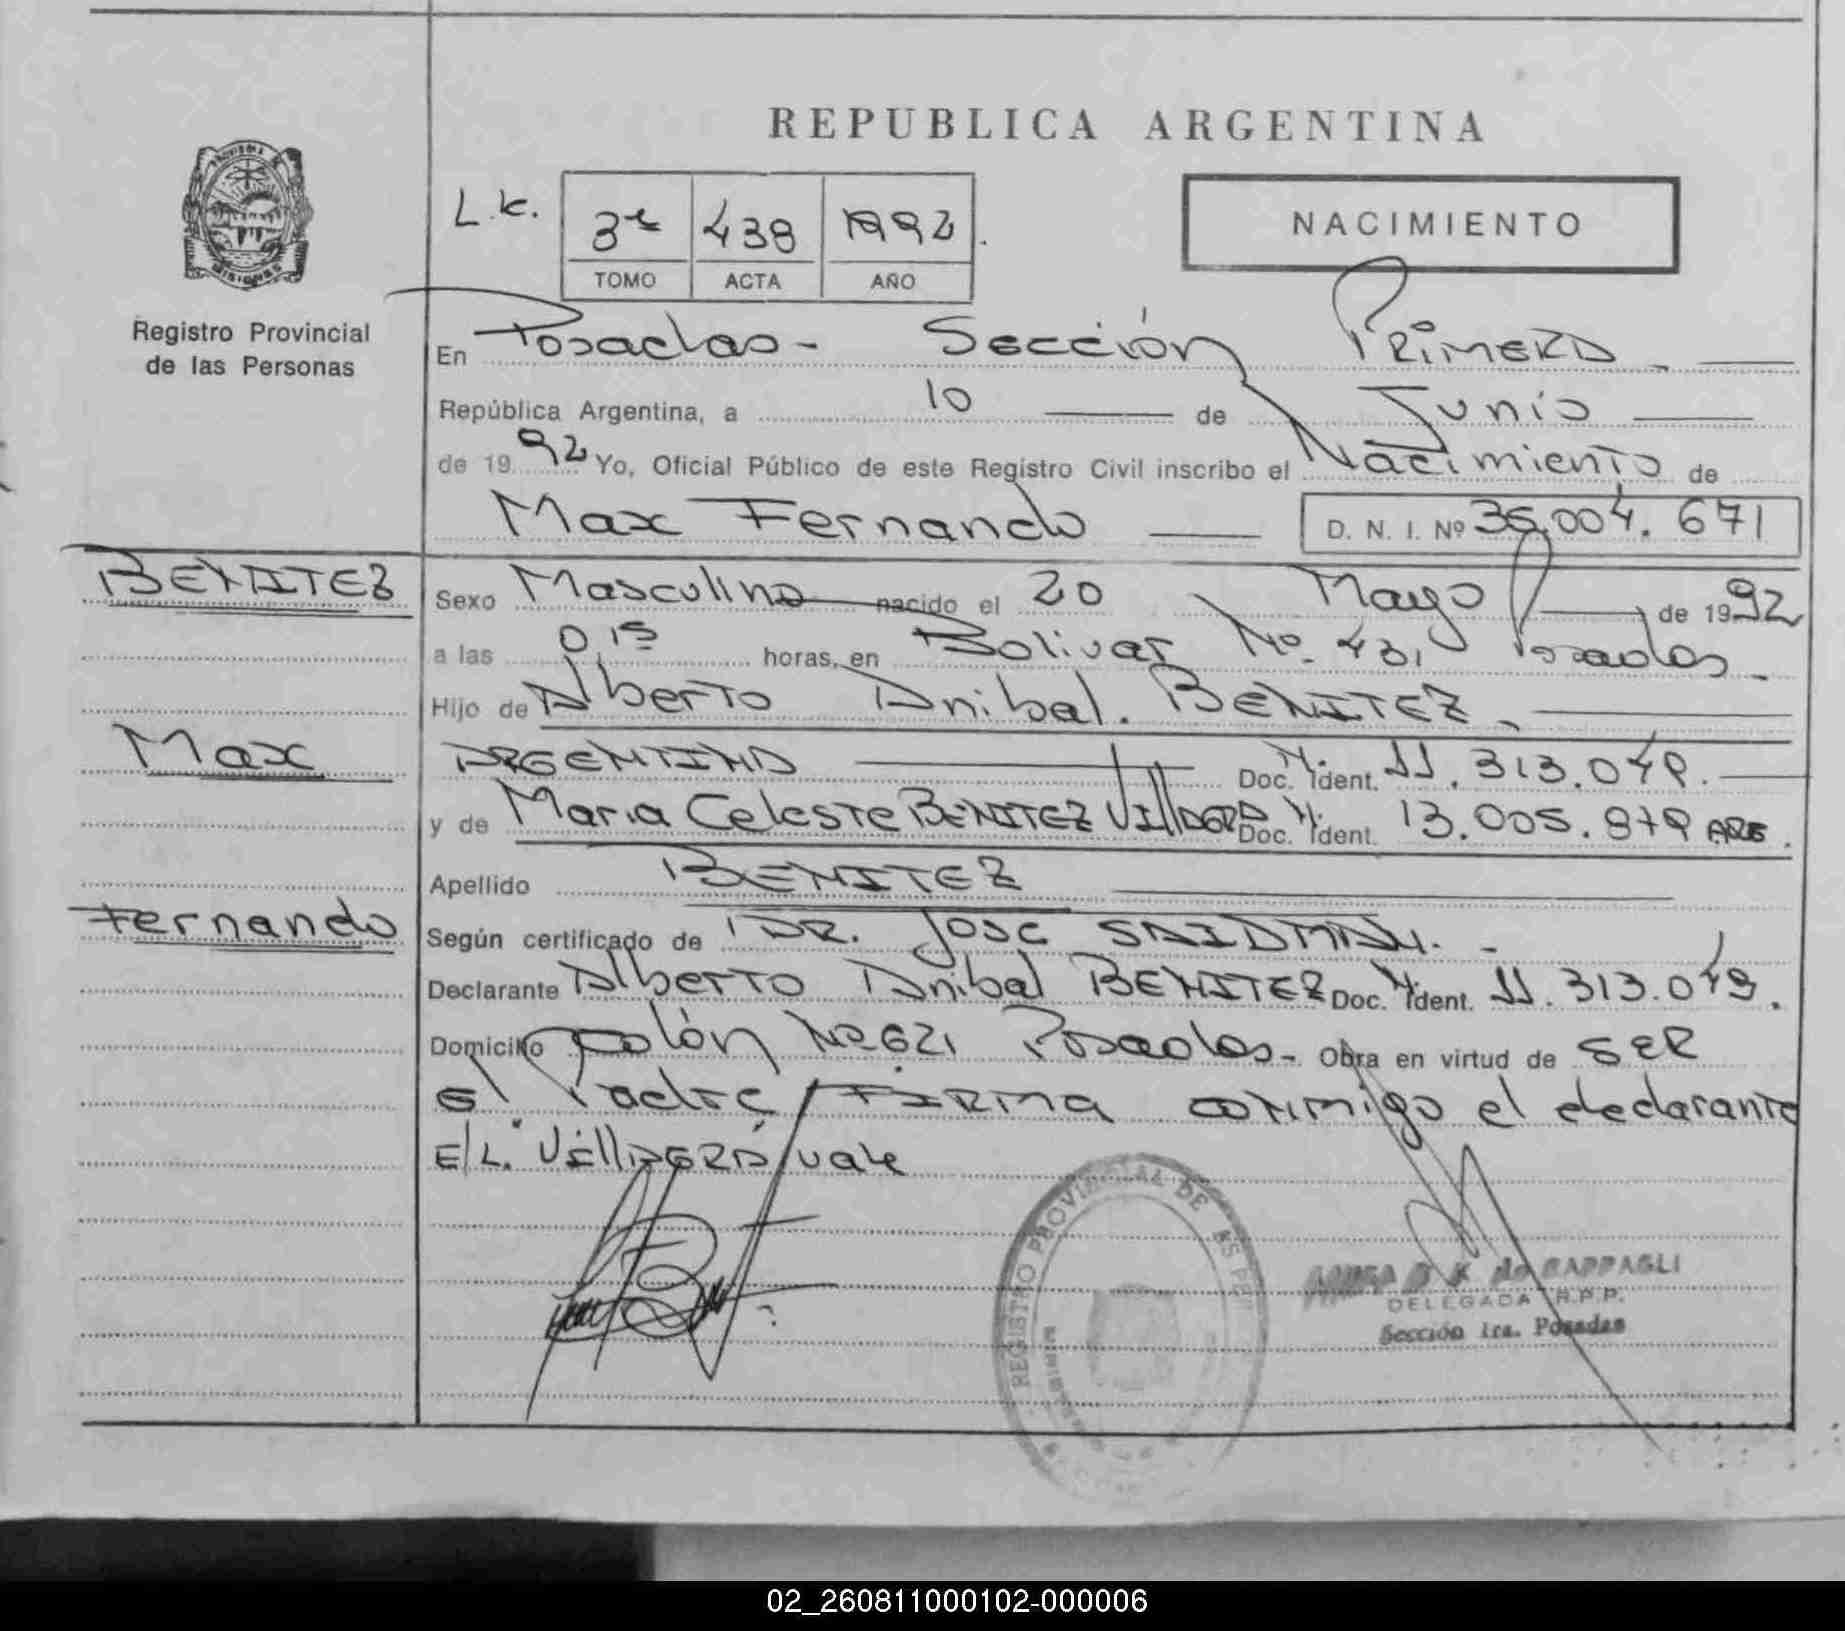 REPUBLICA ARGENTINA
L.K.
3º 438 1992.
TOMO ACTA AÑO
NACIMIENTO
Registro Provincial
de las Personas
En Posadas- Sección Primera
República Argentina, a 10 de Junio
de 1992 Yo, Oficial Público de este Registro Civil inscribo el Nacimiento de
Max Fernando D. N. I. Nº 36.004.671
BENITEZ
Sexo Masculino nacido el 20 Mayo de 1992
a las 0,15 horas, en Bolivar Nº. 431 Posadas
Hijo de Alberto Anibal. BENITEZ
Max
ARGENTINO Doc. M. Ident. 11.313.049.
y de Maria Celeste BENITEZ VillAGRA Doc. M. Ident. 13.005.879 ARG.
Apellido BENITEZ
Fernando
Según certificado de DR. Jose SAIDMAN.-
Declarante Alberto Anibal BENITEZ Doc. M. Ident. 11.313.049.
Domicilio Colón Nº 621 Posadas- Obra en virtud de SER
el Padre FIRMA conmigo el declarante
E/L. "VillAGRA" vale
REGISTRO PROVINCIAL DE
de RAPPAGLI
DELEGADA R.P.P.
Sección 1ra. Posadas
02_260811000102-000006